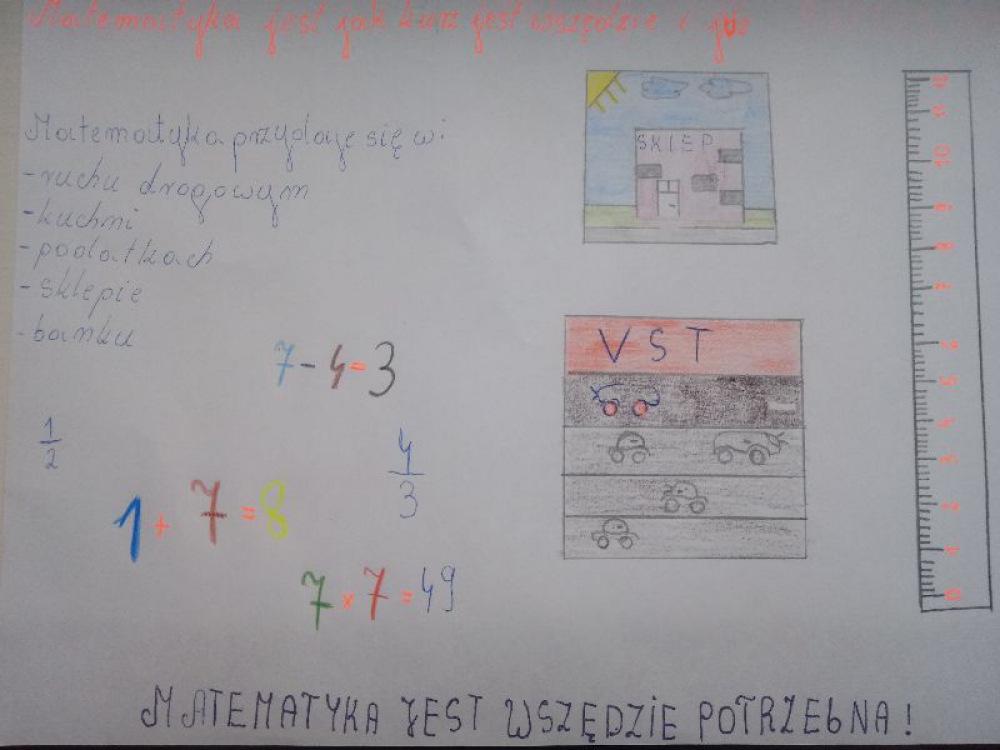 Matematyka jest jak kurz jest wszędzie i już
Matematyka przydaje się w:
- ruchu drogowym
- kuchni
- podatkach
- sklepie
- banku
SKLEP
VST
7 - 4 = 3
1/2
4/3
1 + 7 = 8
7 x 7 = 49
10
9
8
7
6
5
4
3
2
1
0
MATEMATYKA JEST WSZĘDZIE POTRZEBNA!